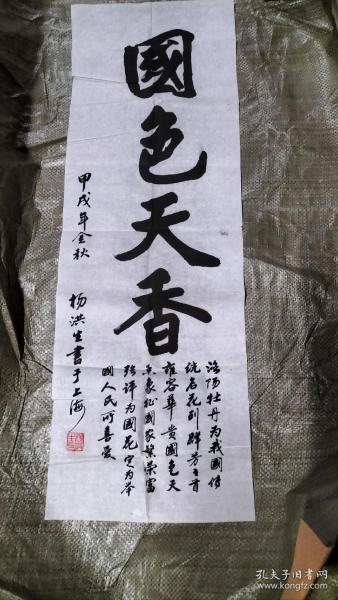 國色天香
洛陽牡丹为我國传
统名花列群芳之首
雍容華贵國色天
香象征國家繁荣富
强评为國花定为本
國人民所喜爱
甲戌年金秋
杨洪生書于上海
孔夫子旧书网